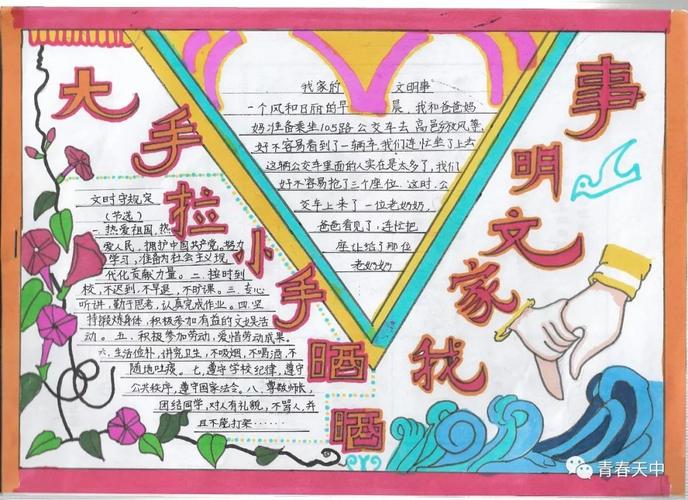 大手拉小手晒晒
我家文明事
我家的 文明事
一个风和日丽的早 晨，我和爸爸妈
妈准备乘坐105路公交车去高邑纷风筝，
好不容易看到了一辆车，我们连忙坐了上去
这辆公交车里面的人实在是太多了，我们
好不容易抢了三个座位。这时，公
交车上来了一位老奶奶，
爸爸看见了，连忙把
座让给了那位
老奶奶
文时守规定
（节选）
一.热爱祖国，热
爱人民，拥护中国共产党，努力
学习，准备为社会主义现
代化贡献力量。二、按时到
校，不迟到，不早退，不旷课。三、专心
听讲，勤于思考，认真完成作业。四.坚
持锻炼身体，积极参加有益的文娱活
动。五、积极参加劳动，爱惜劳动成果。
六、生活俭朴，讲究卫生，不吸烟，不喝酒，不
随地吐痰。七、遵守学校纪律，遵守
公共秩序，遵守国家法令。八、尊敬师长，
团结同学，对人有礼貌，不骂人，并
且不能打架……
青春天中